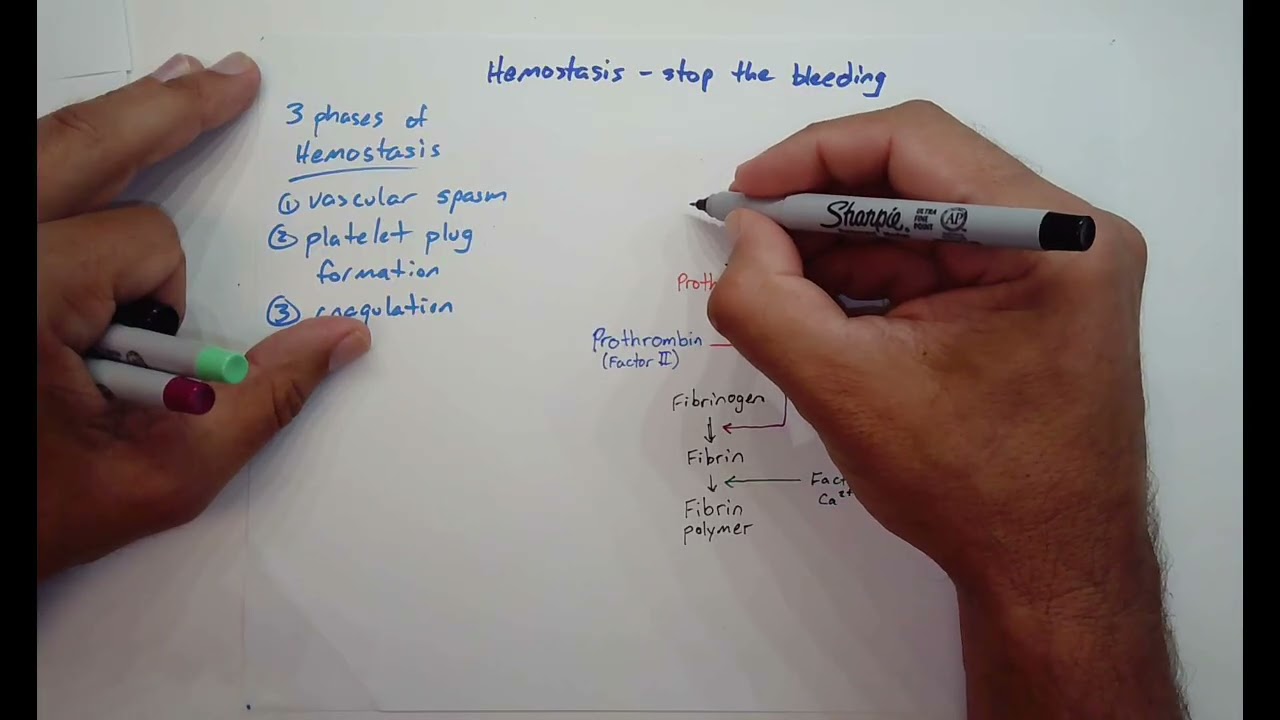 Hemostasis - stop the bleeding
3 phases of
Hemostasis
① vascular spasm
② platelet plug
formation
③ coagulation
Sharpie.
ULTRA
FINE
POINT
AP
Proth
Prothrombin
(Factor II)
Fibrinogen
Fibrin
Fact
Ca²⁺
Fibrin
polymer